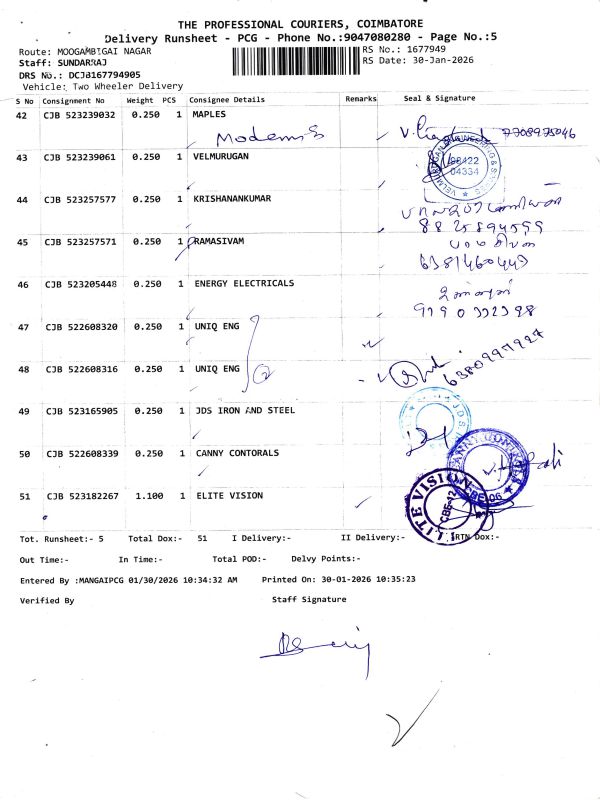 THE PROFESSIONAL COURIERS, COIMBATORE
Delivery Runsheet - PCG - Phone No.:9047080280 - Page No.:5
Route: MOOGAMBIGAI NAGAR RS No.: 1677949
Staff: SUNDARRAJ RS Date: 30-Jan-2026
DRS No.: DCJB167794905
Vehicle: Two Wheeler Delivery
S No Consignment No Weight PCS Consignee Details Remarks Seal & Signature
42 CJB 523239032 0.250 1 MAPLES
Modems 7708975046
43 CJB 523239061 0.250 1 VELMURUGAN
VELMURUGAN ENGINEERING & 98422 04334
44 CJB 523257577 0.250 1 KRISHANANKUMAR
8825894599
45 CJB 523257571 0.250 1 RAMASIVAM
6381460449
46 CJB 523205448 0.250 1 ENERGY ELECTRICALS
47 CJB 522608320 0.250 1 UNIQ ENG
48 CJB 522608316 0.250 1 UNIQ ENG 2
6380997927
49 CJB 523165905 0.250 1 JDS IRON AND STEEL
50 CJB 522608339 0.250 1 CANNY CONTORALS
CANNY CONTROLS CBE-06
51 CJB 523182267 1.100 1 ELITE VISION
ELITE VISION CBE-12
Tot. Runsheet:- 5 Total Dox:- 51 I Delivery:- II Delivery:- RTN Dox:-
Out Time:- In Time:- Total POD:- Delvy Points:-
Entered By :MANGAIPCG 01/30/2026 10:34:32 AM Printed On: 30-01-2026 10:35:23
Verified By Staff Signature